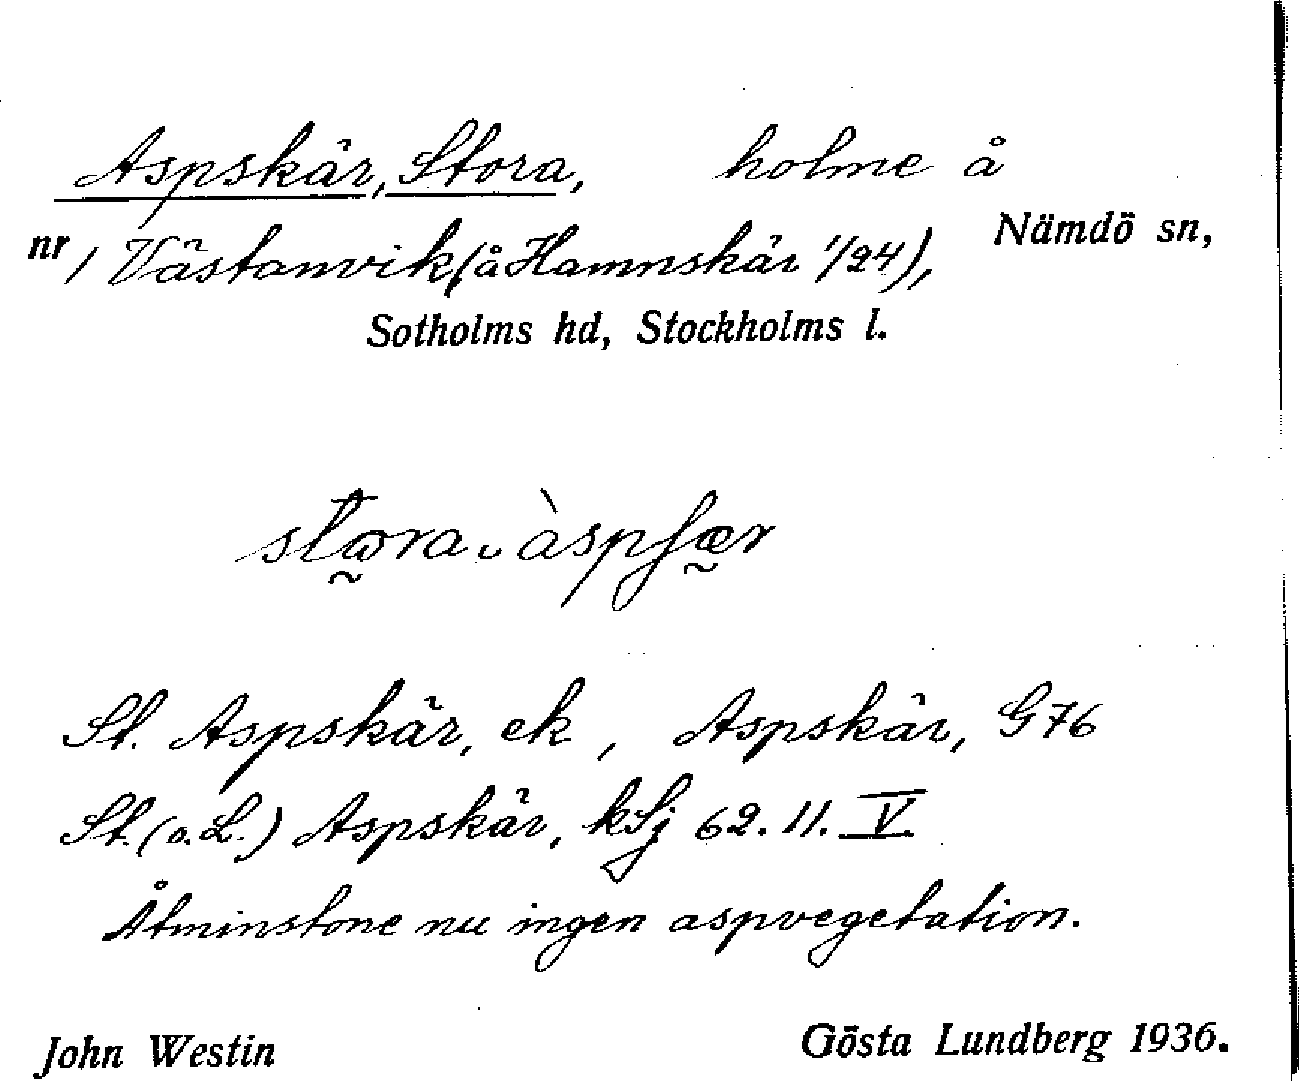 Aspskär, Stora, holme å
nr 1 Västanvik (å Hamnskär 1/24), Nämdö sn,
Sotholms hd, Stockholms l.
St. Aspskär, ek, Aspskär, G 76
St. (o. L.) Aspskär, kSj 62. 11. V.
Åtminstone nu ingen aspvegetation.
John Westin Gösta Lundberg 1936.